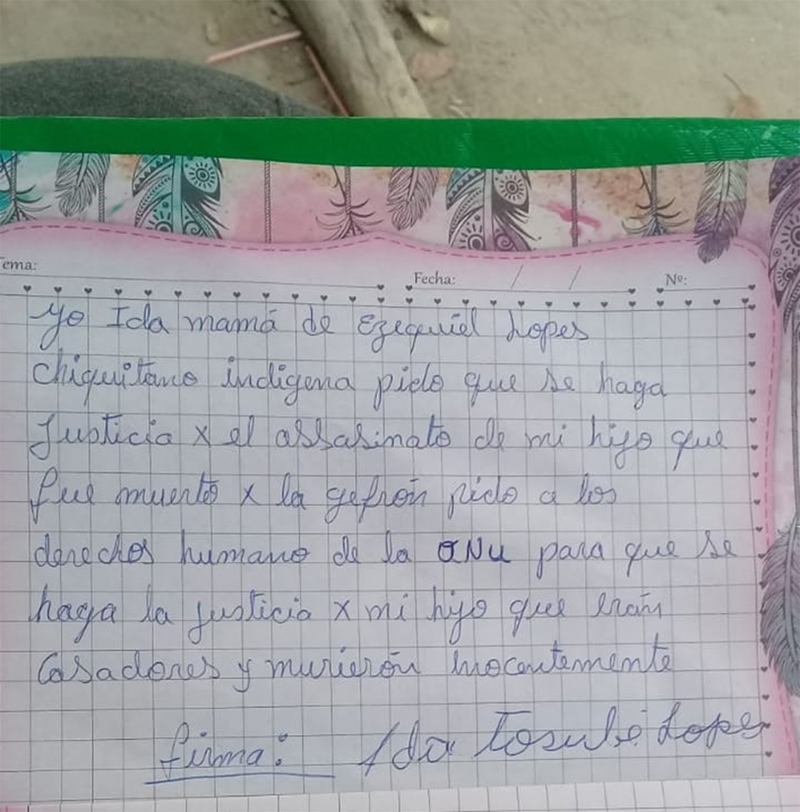 Tema:
Fecha: / /
Nº:
Yo Ida mamá de Ezequiel Lopes
chiquitano indigena pido que se haga
Justicia x el assasinato de mi hijo que
fue muerto x la gefrón pido a los
derechos humano de la ONU para que se
haga la justicia x mi hijo que eran
Casadores y murierón inocentemente
firma: Ida Tosubé Lopes